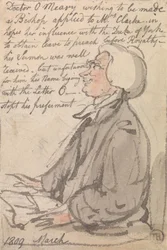 Doctor O'Meara wishing to be made
a Bishop applied to Mrs Clarke in
hopes her influence with the Duke of York
to obtain leave to preach before Royalty
his Sermon was well
received, but unfortunately
for him his Name begins
with the Letter O
stopt his preferment
1809 March